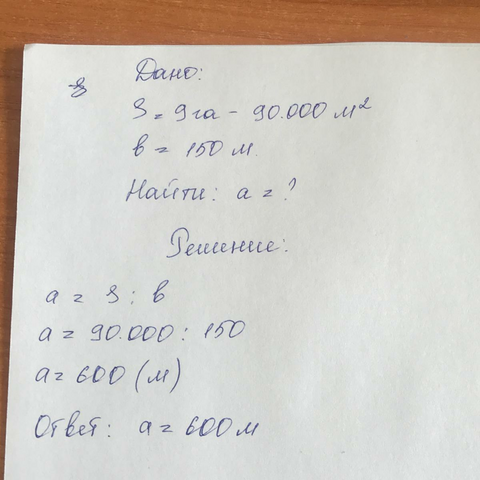 Дано:
S = 9 га - 90.000 м²
в = 150 м.
Найти: а = ?
Решение:
а = S : в
а = 90.000 : 150
а = 600 (м)
Ответ: а = 600 м